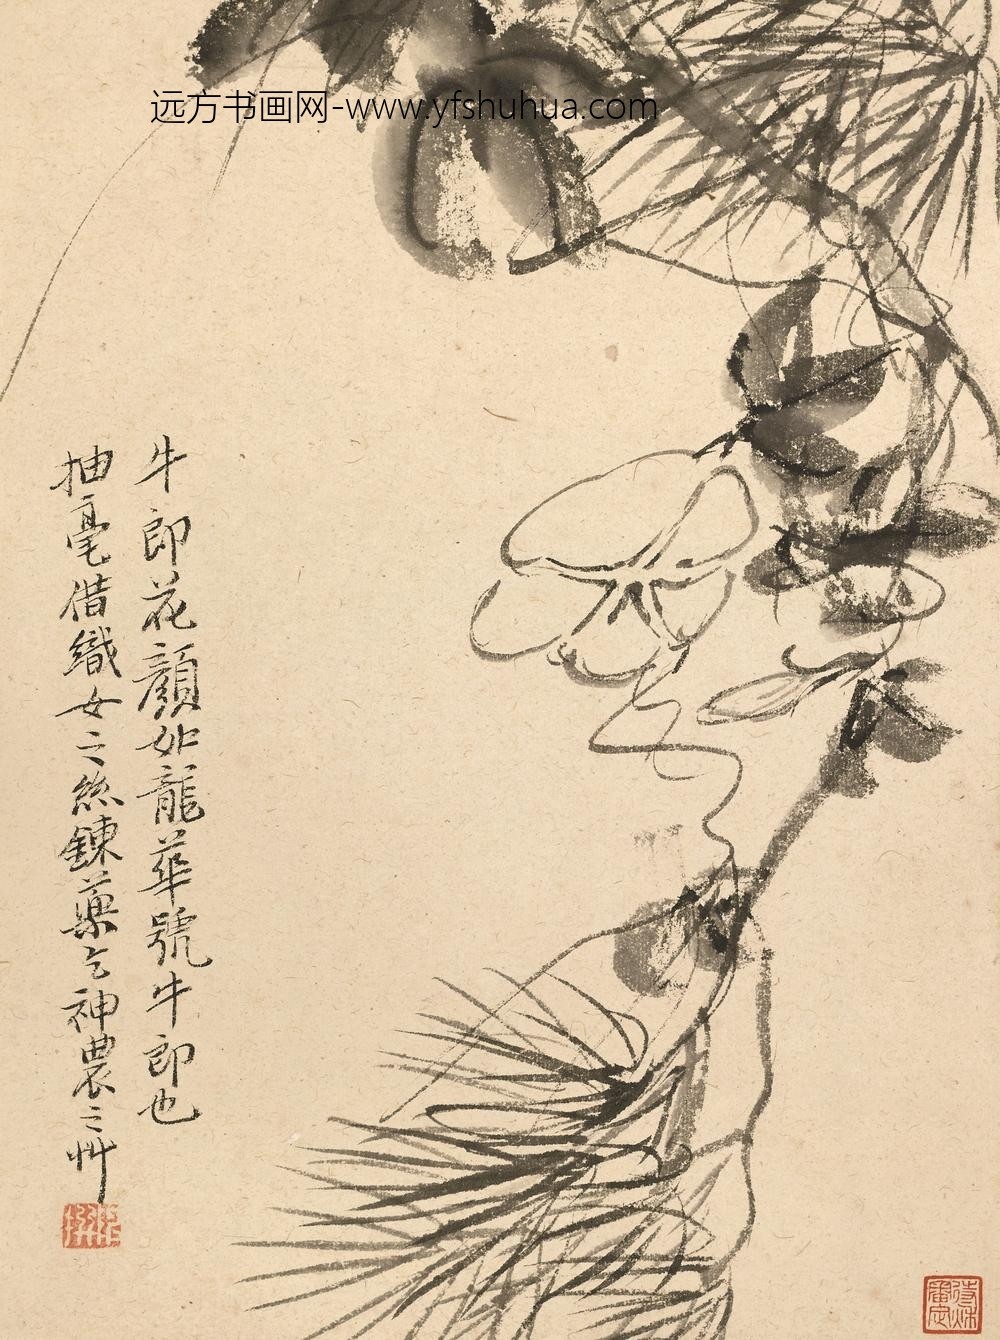 远方书画网-www.yfshuhua.com
牛郎花顔如龍華號牛郎也
抽毫借織女之絲鍊藥乞神農之艸